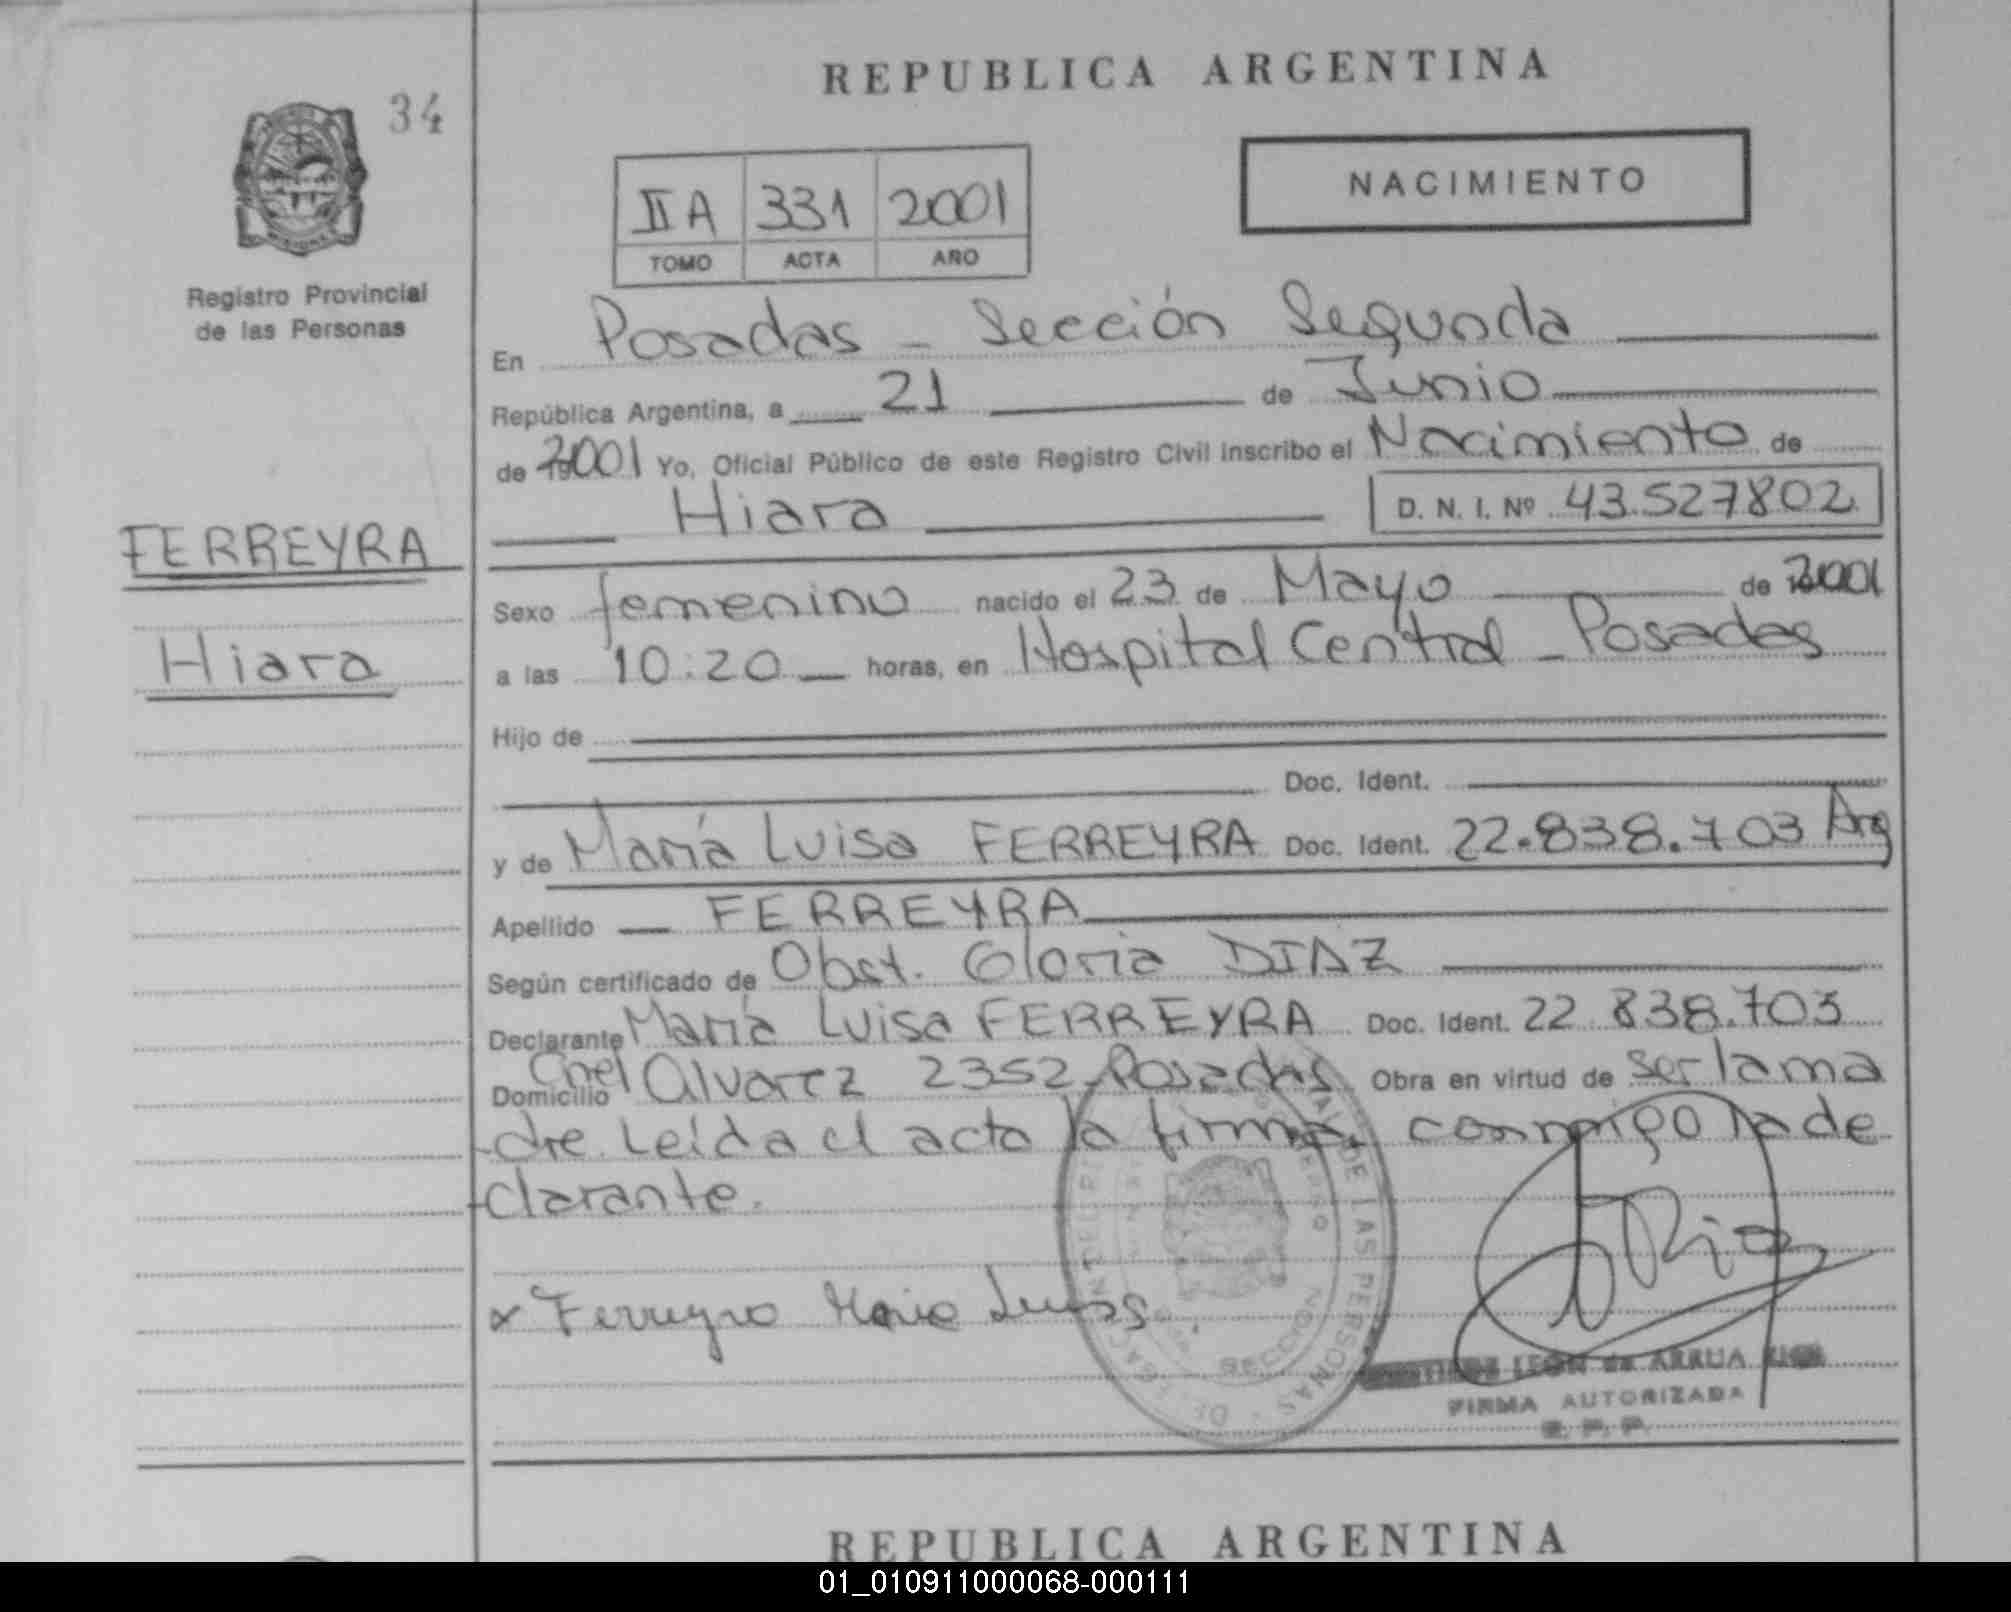 REPUBLICA ARGENTINA
34
NACIMIENTO
II A 331 2001
TOMO ACTA AÑO
Registro Provincial
de las Personas
En Posadas - Sección Segunda
República Argentina, a 21 de Junio
de 2001 Yo, Oficial Público de este Registro Civil inscribo el Nacimiento de
Hiara D. N. I. Nº 43.527802
FERREYRA
Hiara
Sexo femenino nacido el 23 de Mayo de 2001
a las 10:20 horas, en Hospital Central - Posadas
Hijo de
Doc. Ident.
y de María Luisa FERREYRA Doc. Ident. 22.838.703 Arg
Apellido FERREYRA
Según certificado de Obst. Gloria DIAZ
Declarante María Luisa FERREYRA Doc. Ident. 22.838.703
Domicilio Cnel Alvarez 2352 - Posadas Obra en virtud de ser la ma
dre. Leída el acta la firma, conmigo la de
clarante.
x Ferreyra Maria Luisa
DE LAS PERSONAS
SECCION
LEON de ARRUA
FIRMA AUTORIZADA
R. P. P.
REPUBLICA ARGENTINA
01_010911000068-000111